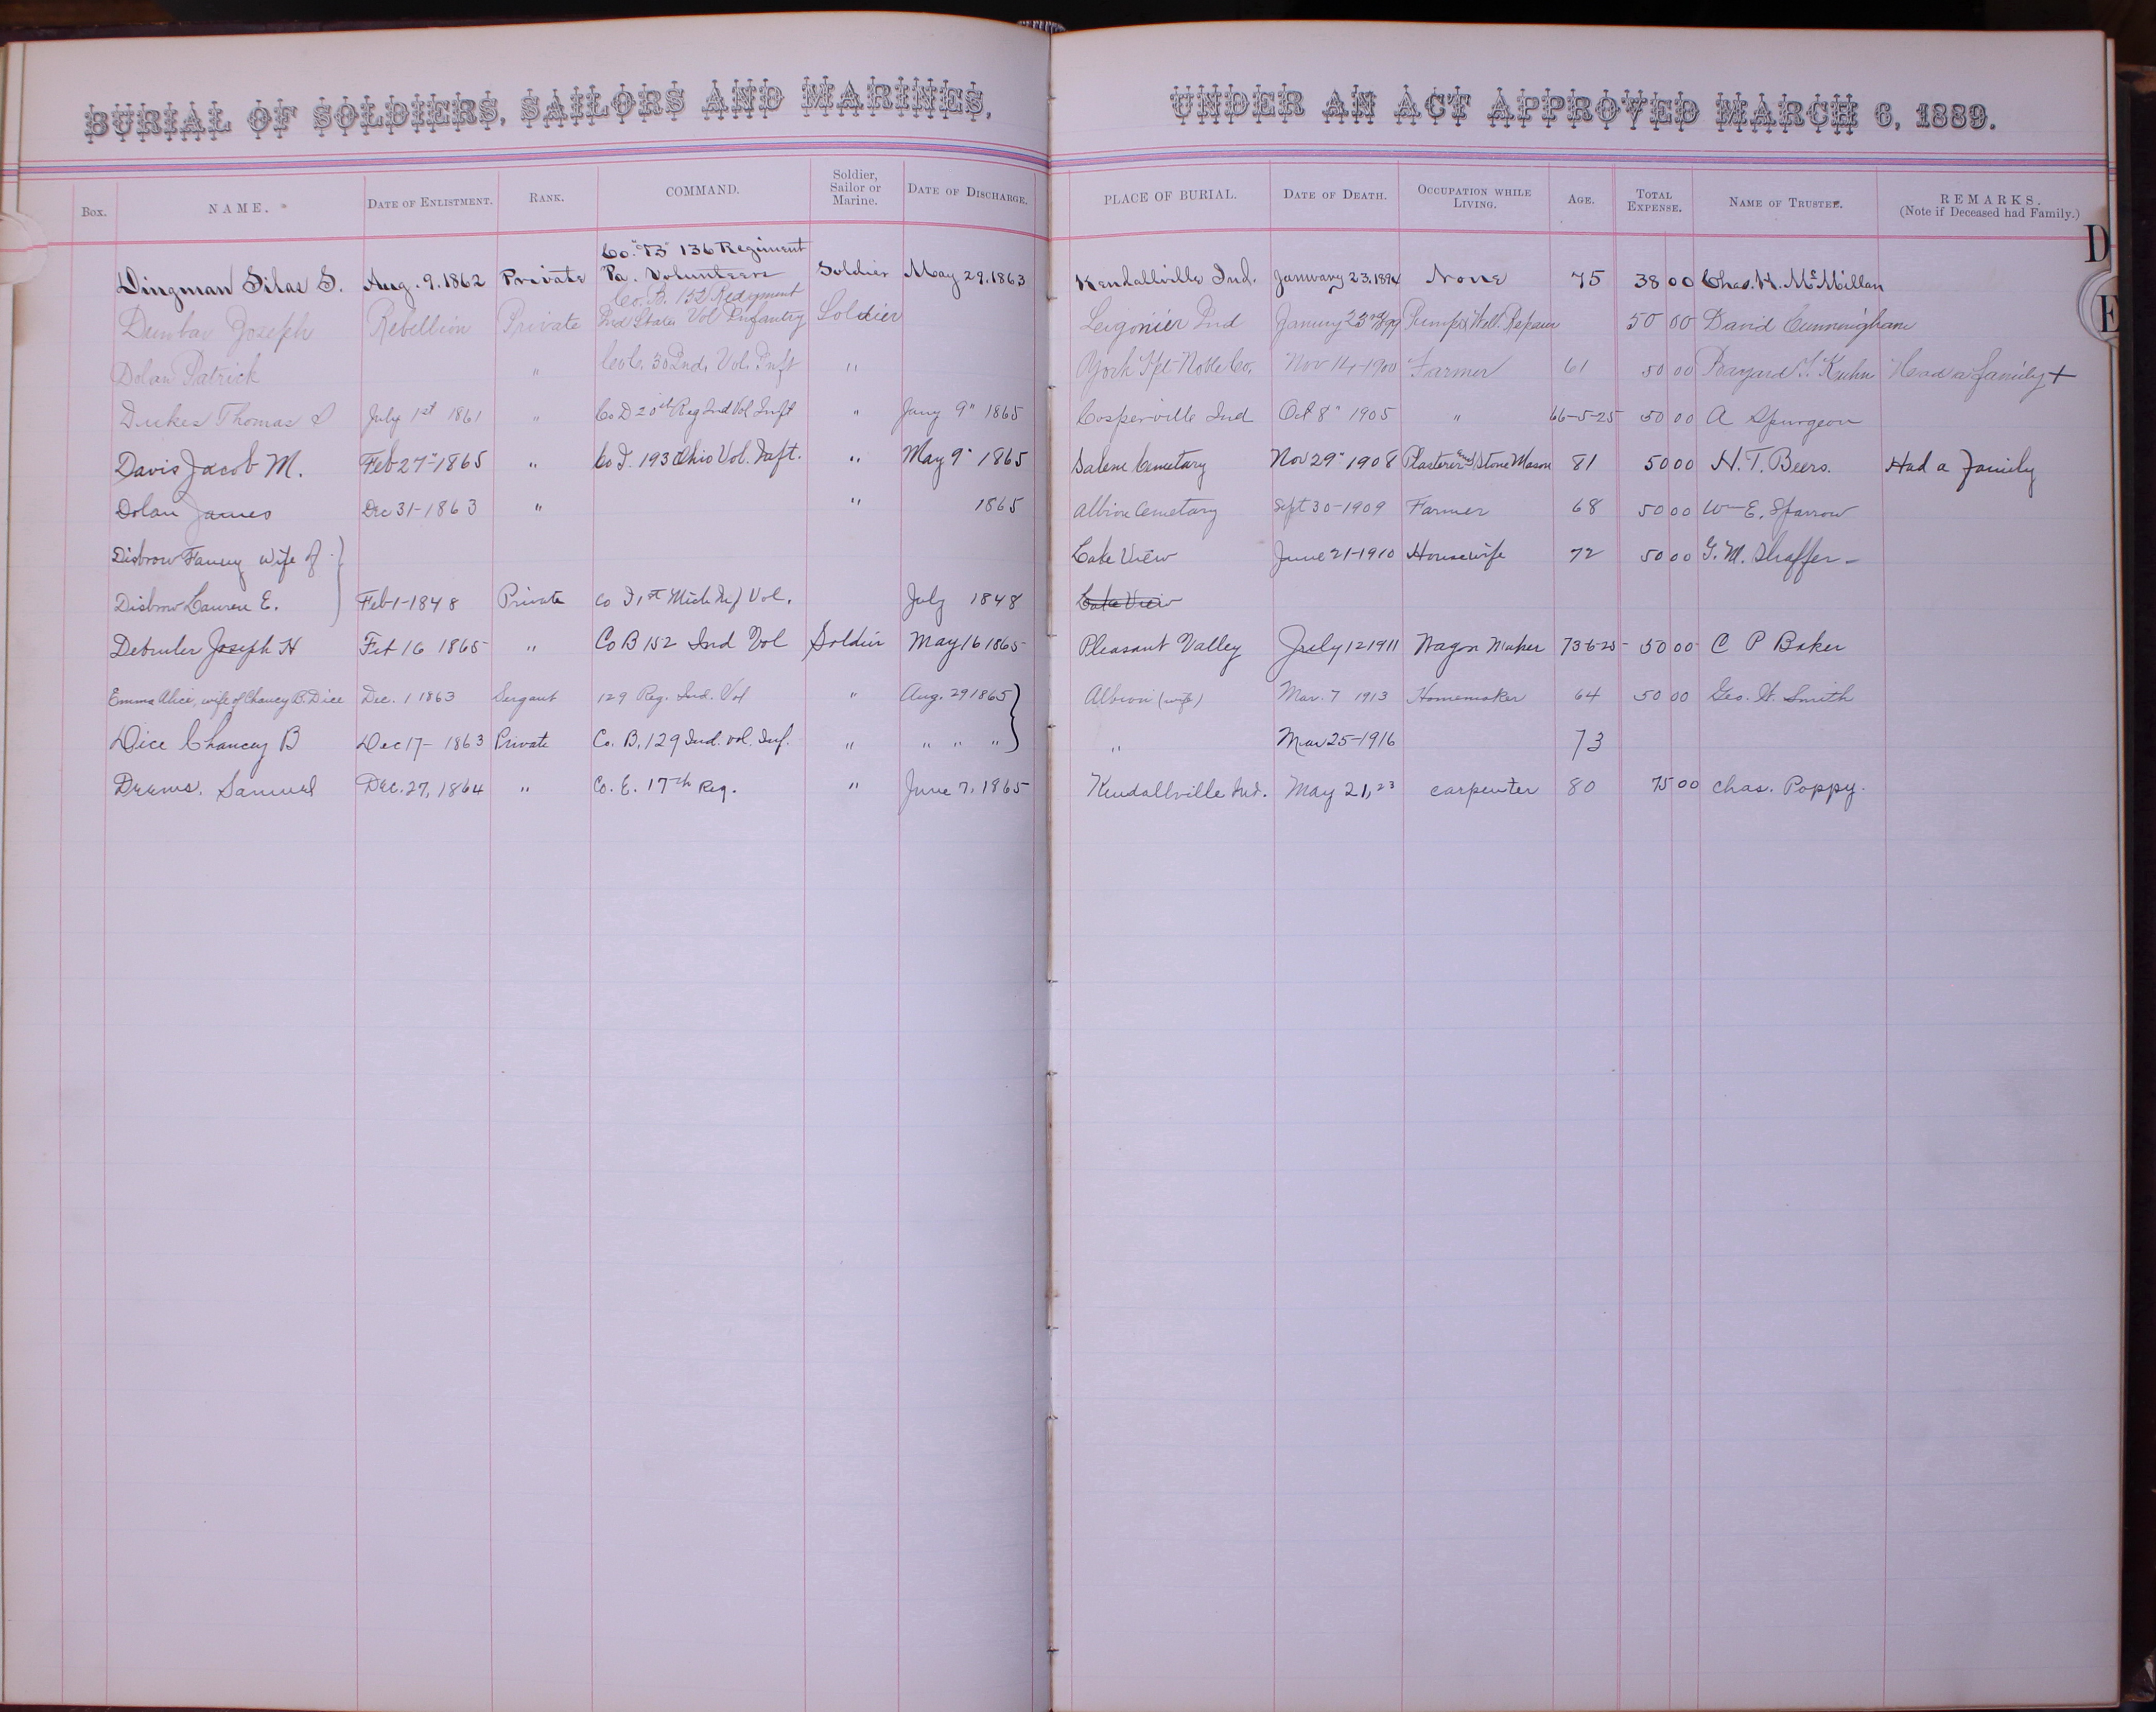 BURIAL OF SOLDIERS, SAILORS AND MARINES, UNDER AN ACT APPROVED MARCH 6, 1889.
Box. NAME. DATE OF ENLISTMENT. RANK. COMMAND. Soldier, Sailor or Marine. DATE OF DISCHARGE. PLACE OF BURIAL. DATE OF DEATH. OCCUPATION WHILE LIVING. AGE. TOTAL EXPENSE. NAME OF TRUSTEE. REMARKS. (Note if Deceased had Family.)
D
E
Co. "B" 136 Regiment
Dingman Silas S. Aug. 9. 1862 Private Pa. Volunteers Soldier May 29. 1863 Kendallville Ind. January 23. 1894 None 75 38 00 Chas. H. McMillan
Co. B. 152 Redgment
Dunbar Joseph Rebellion Private Ind State Vol Infantry Soldier Leigonier Ind January 23rd 1899 Pump & Well Repairer 50 00 David Cunningham
Dolan Patrick " Co C. 30 Ind. Vol. Inft " York Tpt Noble Co. Nov 14-1900 Farmer 61 50 00 Kuhn Had a family +
Dukes Thomas July 1st 1861 " Co D 20st Reg Ind Vol Inft " Jany 9" 1865 Cosperville Ind Oct 8" 1905 " 66-5-25 50 00 A Spurgeon
Davis Jacob M. Feb 27"-1865 " Co I. 193 Ohio Vol. Inft. " May 9" 1865 Salem Cemetary Nov 29" 1908 Plasterer and Stone Mason 81 50 00 H. T. Beers. Had a family
Dolan James Dec 31-1863 " " 1865 Albion Cemetary Sept 30-1909 Farmer 68 50 00 Wm E. Sparrow
Disbrow Fanny wife of Lake View June 21-1910 Housewife 72 50 00 G. M. Shaffer -
Disbrow Lauren E. Feb 1-1848 Private Co I 1st Mich Inf Vol. July 1848 Lake View
Debruler Joseph H Feb 16 1865 " Co B 152 Ind Vol Soldier May 16 1865 Pleasant Valley July 12 1911 Wagon Maker 73-6-25- 50 00 C P Baker
Emma Alice, wife of Chancy B. Dice Dec. 1 1863 Sergant 129 Reg. Ind. Vol " Aug. 29 1865 Albion (wife) Mar. 7 1913 Homemaker 64 50 00 Geo. W. Smith
Dice Chancey B Dec 17- 1863 Private Co. B, 129 Ind. vol. Inf. " " " " " Mar 25-1916 73
Deems. Samuel Dec. 27, 1864 " Co. E. 17th Reg. " June 7, 1865 Kendallville Ind. May 21, 23 carpenter 80 75 00 Chas. Poppy.